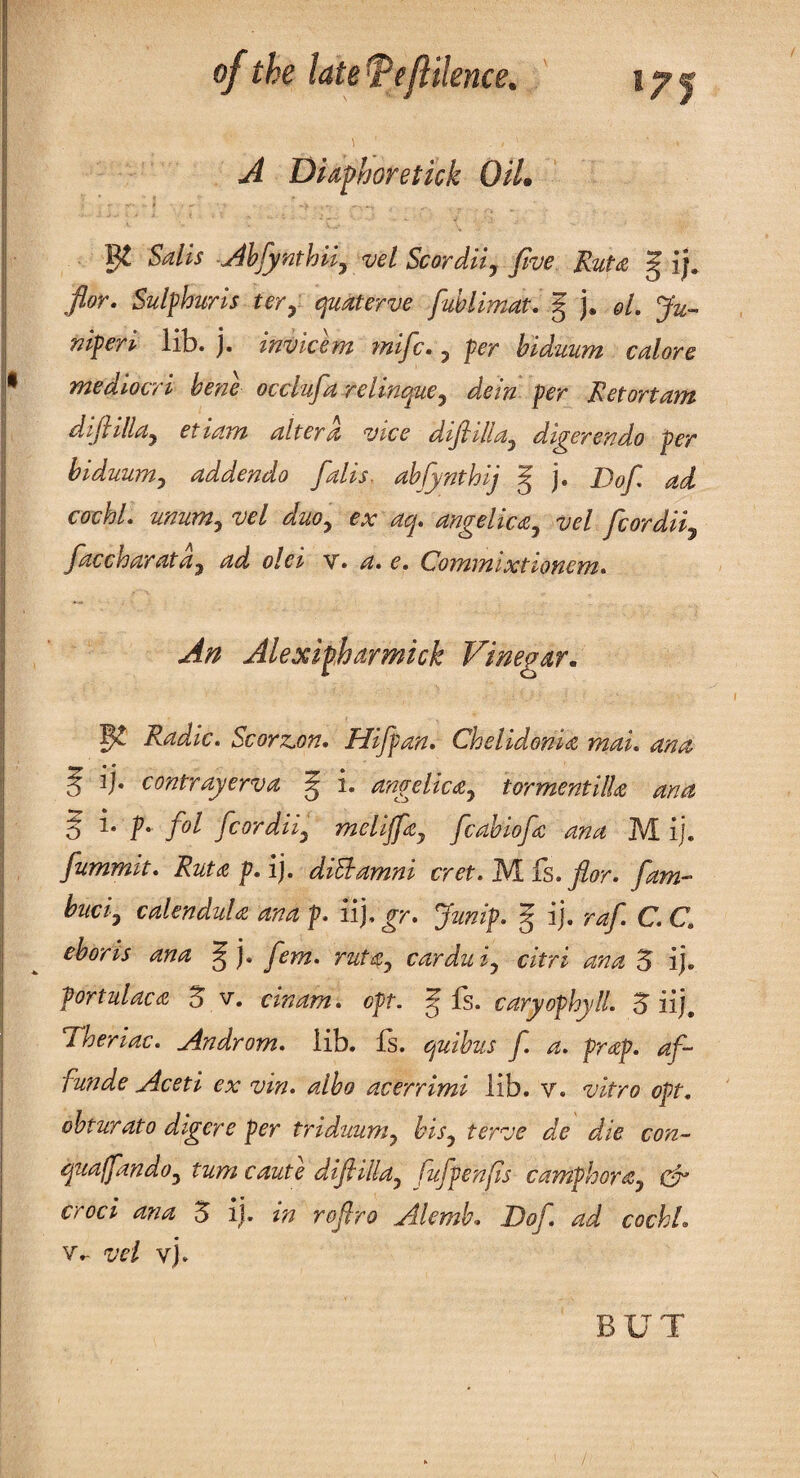 of the late Peſtilence. 175
A Diaphoretick Oil.
℞ Salis Abſynthii, vel Scordii, ſive Rutæ ℥ ij.
flor. Sulphuris ter, quaterve ſublimat. ℥ j. ol. Ju-
niperi lib. j. invicèm miſc., per biduum calore
mediocri benè occluſa relinque, dein per Retortam
diſtilla, etiam alterâ vice diſtilla, digerendo per
biduum, addendo ſalis abſynthij ℥ j. Doſ. ad
cochl. unum, vel duo, ex aq. angelicæ, vel ſcordii,
ſaccharatâ, ad olei v. a. e. Commixtionem.
An Alexipharmick Vinegar.
℞ Radic. Scorzon. Hiſpan. Chelidoniæ mai. ana
℥ ij. contrayerva ℥ i. angelicæ, tormentillæ ana
℥ i. p. fol ſcordii, meliſſæ, ſcabioſæ ana M ij.
ſummit. Rutæ p. ij. dictamni cret. M ſs. flor. ſam-
buci, calendulæ ana p. iij. gr. Junip. ℥ ij. raſ. C. C.
eboris ana ℥ j. ſem. rutæ, cardui, citri ana ʒ ij.
portulacæ ʒ v. cinam. opt. ℥ ſs. caryophyll. ʒ iij.
Theriac. Androm. lib. ſs. quibus ſ. a. præp. af-
funde Aceti ex vin. albo acerrimi lib. v. vitro opt.
obturato digere per triduum, bis, terve de die con-
quaſſando, tum cautè diſtilla, ſuſpenſis camphoræ, &
croci ana ʒ ij. in roſtro Alemb. Doſ. ad cochl.
v. vel vj.
BUT